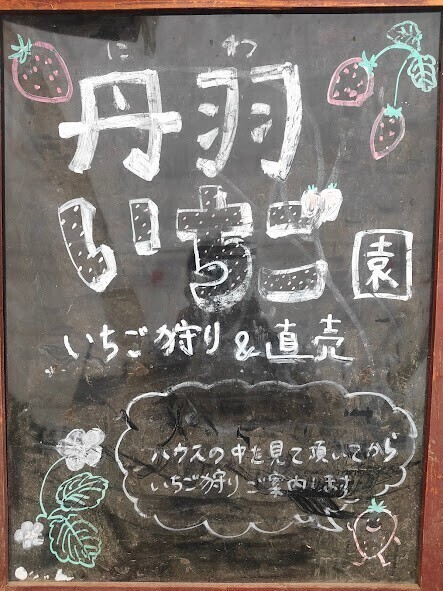 にわ
丹羽
いちご園
いちご狩り&直売
ハウスの中を見て頂いてから
いちご狩りご案内します